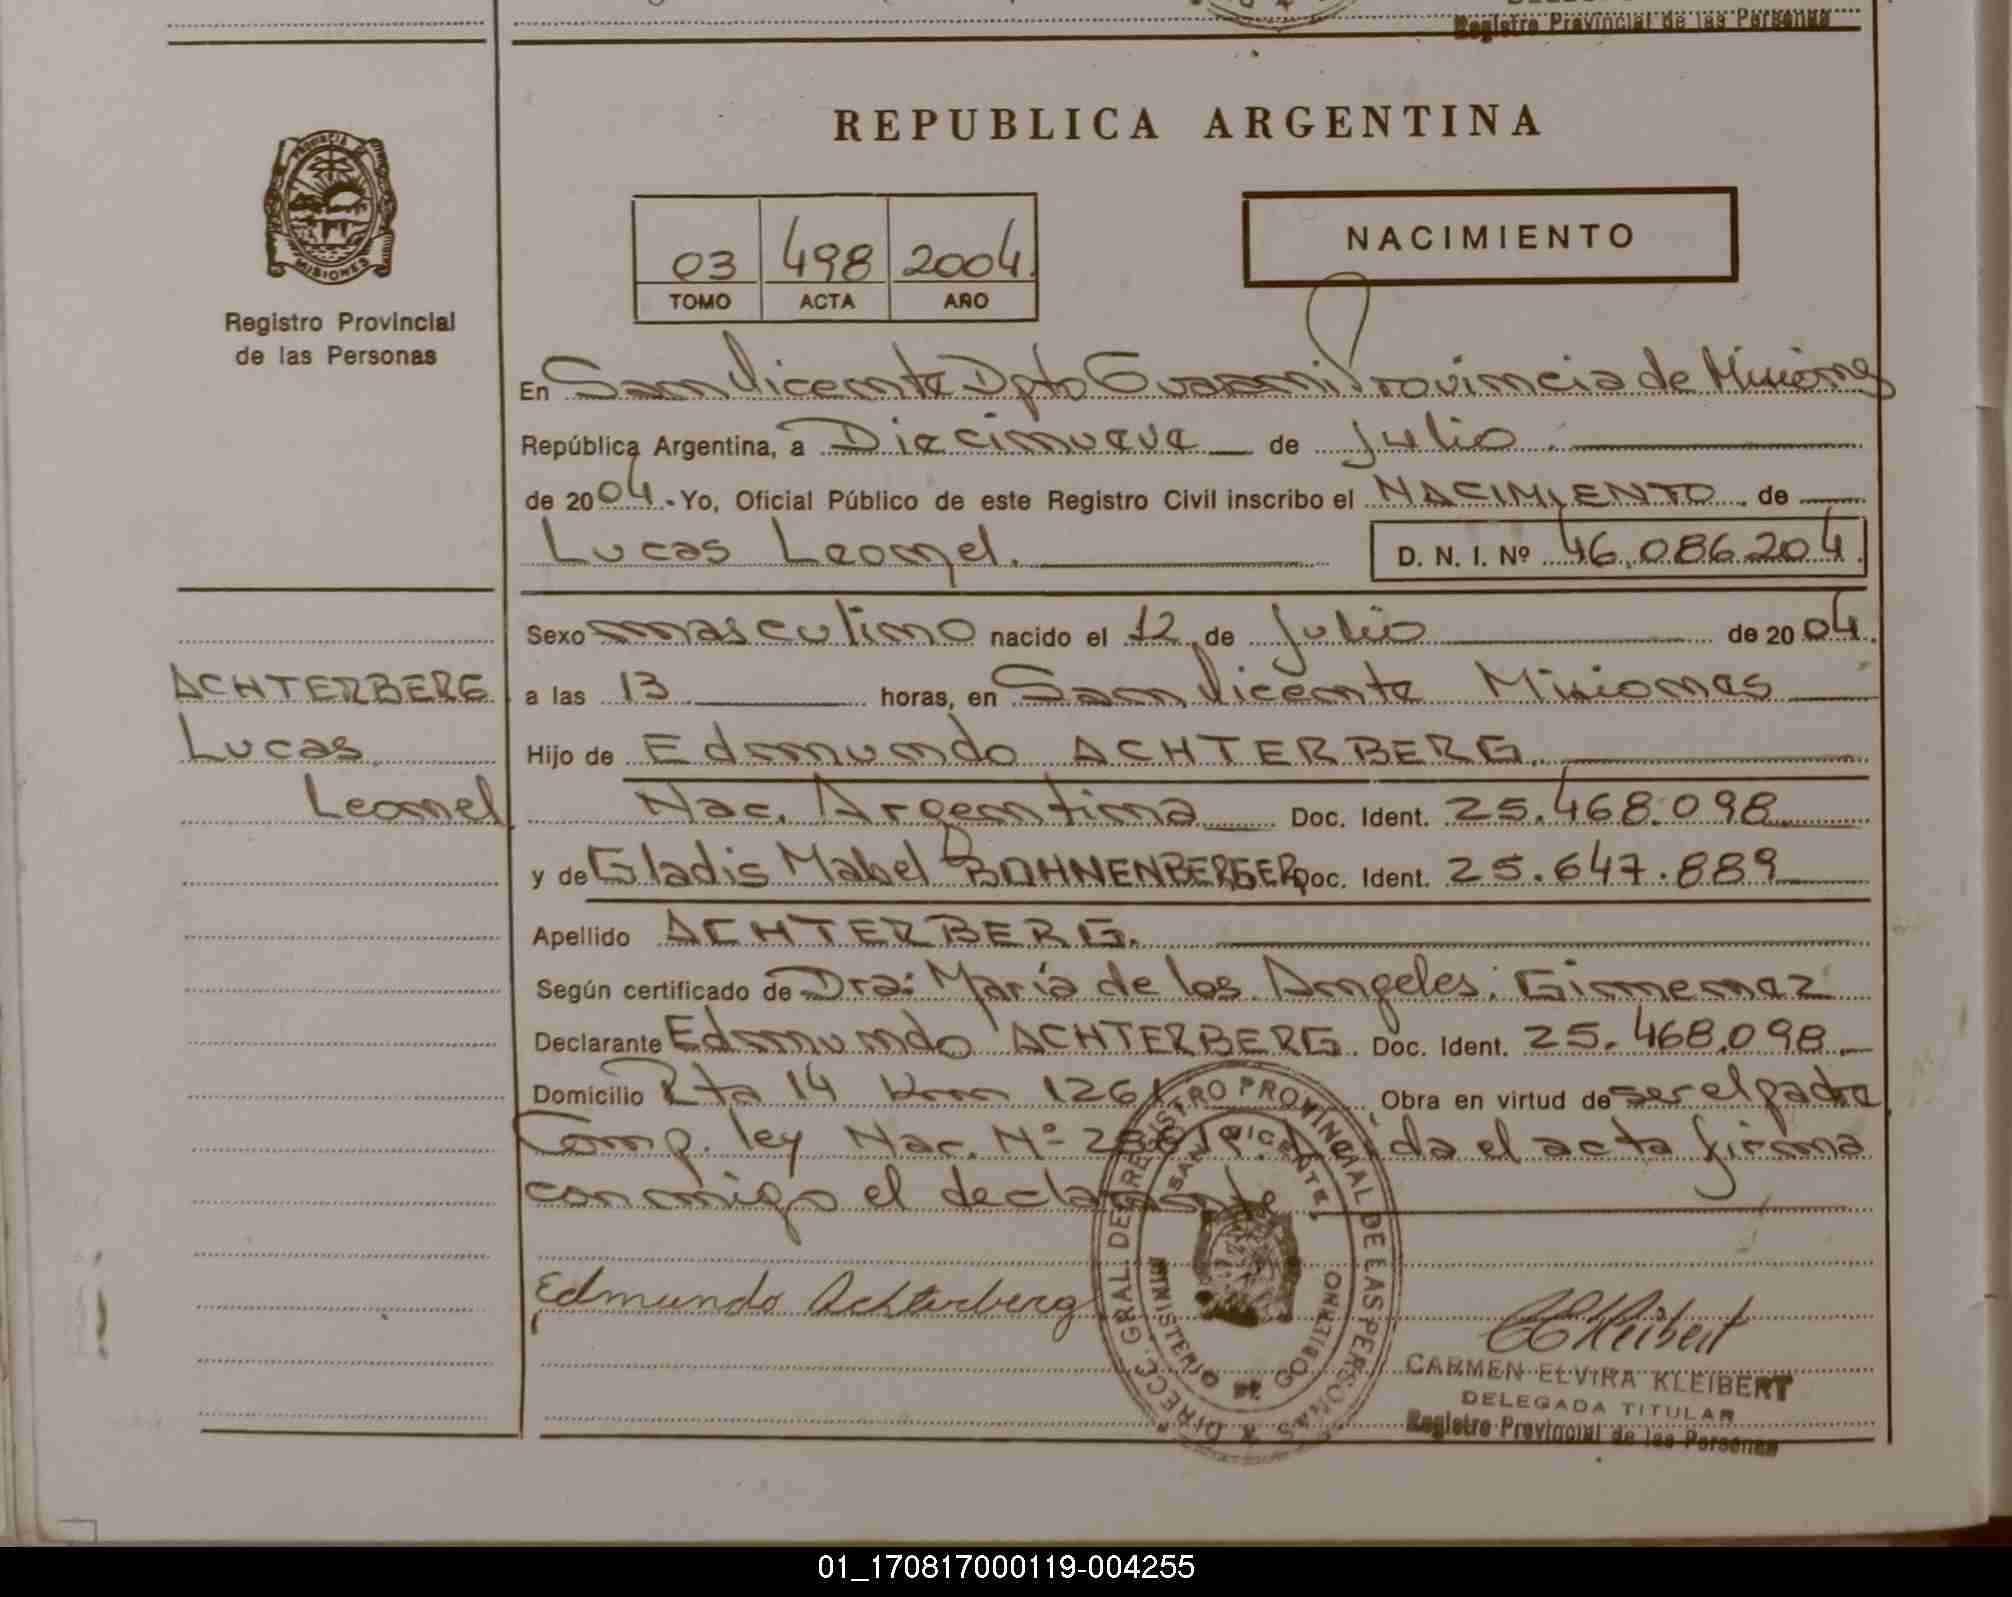 Registro Provincial de las Personas
REPUBLICA ARGENTINA
NACIMIENTO
03 498 2004
TOMO ACTA AÑO
PROVINCIA DE
MISIONES
Registro Provincial
de las Personas
En San Vicente Dpto Guarani Provincia de Misiones
República Argentina, a Diecinueve de Julio
de 2004.- Yo, Oficial Público de este Registro Civil inscribo el NACIMIENTO de
Lucas Leonel. D. N. I. Nº 46.086.204.
Sexo masculino nacido el 12 de Julio de 2004.
a las 13 horas, en San Vicente Misiones
Hijo de Edmundo ACHTERBERG.
Nac. Argentina Doc. Ident. 25.468.098
y de Gladis Mabel BOHNENBERGER Doc. Ident. 25.647.889
Apellido ACHTERBERG.
Según certificado de Dra: María de los Angeles Gimenez
Declarante Edmundo ACHTERBERG. Doc. Ident. 25.468.098
Domicilio Rta 14 Km 1261 Obra en virtud de ser el padre
Comp. ley Nac. Nº el acta firma
conmigo el declarante
ACHTERBERG
Lucas
Leonel
Edmundo Achterberg
DIRECC. GRAL DEL REGISTRO PROVINCIAL DE LAS PERSONAS
SAN VICENTE
MINISTERIO DE GOBIERNO
CEKleibert
CARMEN ELVIRA KLEIBERT
DELEGADA TITULAR
Registro Provincial de las Personas
01_170817000119-004255